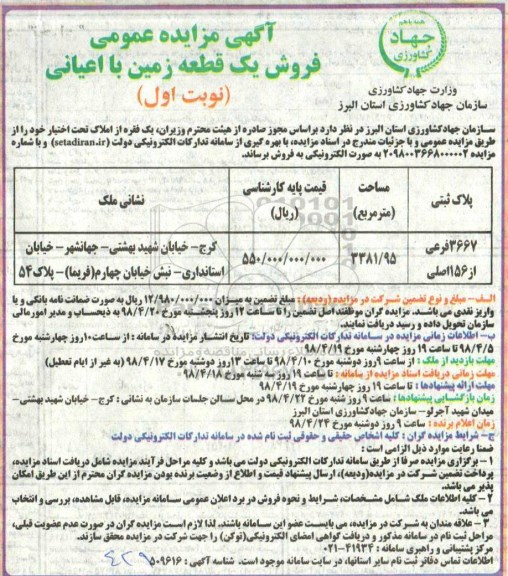 همه با هم
جهاد
کشاورزی
وزارت جهاد کشاورزی
سازمان جهاد کشاورزی استان البرز
آگهی مزایده عمومی
فروش یک قطعه زمین با اعیانی
(نوبت اول)
سازمان جهاد کشاورزی استان البرز در نظر دارد براساس مجوز صادره از هیئت محترم وزیران، یک فقره از املاک تحت اختیار خود را از
طریق مزایده عمومی و با جزئیات مندرج در اسناد مزایده، با بهره گیری از سامانه تدارکات الکترونیکی دولت (setadiran.ir) و با شماره
مزایده ۲۰۹۸۰۰۳۶۶۸۰۰۰۰۰۲ به صورت الکترونیکی به فروش برساند.
پلاک ثبتی
مساحت (مترمربع)
قیمت پایه کارشناسی (ریال)
نشانی ملک
۳۶۶۷فرعی از۱۵۶اصلی
۳۳۸۱/۹۵
۵۵۰/۰۰۰/۰۰۰/۰۰۰
کرج- خیابان شهید بهشتی- جهانشهر- خیابان
استانداری- نبش خیابان چهارم(فریما)- پلاک۵۴
الف- مبلغ و نوع تضمین شرکت در مزایده (ودیعه) : مبلغ تضمین به میزان ۱۲/۹۸۰/۰۰۰/۰۰۰ ریال به صورت ضمانت نامه بانکی و یا
واریز نقدی می باشد. مزایده گران موظفند اصل تضمین را تا ساعت ۱۲ روز پنجشنبه مورخ ۹۸/۴/۲۰ به ذیحساب و مدیر امورمالی
سازمان تحویل داده و رسید دریافت نمایند.
ب- اطلاعات زمانی مزایده در سامانه تدارکات الکترونیکی دولت: تاریخ انتشار مزایده در سامانه : از ساعت۱۰روز چهارشنبه مورخ
۹۸/۴/۵ تا ساعت ۱۹ روز چهارشنبه مورخ ۹۸/۴/۱۹
مهلت بازدید از ملک : از ساعت ۹روز دوشنبه مورخ ۹۸/۴/۱۰ تا ساعت ۱۳روز دوشنبه مورخ ۹۸/۴/۱۷ (به غیر از ایام تعطیل)
مهلت زمانی دریافت اسناد مزایده از سامانه : تا ساعت ۱۹ روز سه شنبه مورخ ۹۸/۴/۱۸
مهلت ارائه پیشنهادها : تا ساعت ۱۹ روز چهارشنبه مورخ ۹۸/۴/۱۹
زمان بازگشایی پیشنهادها : ساعت ۹ روز شنبه مورخ ۹۸/۴/۲۲ در محل سالن جلسات سازمان به نشانی : کرج- خیابان شهید بهشتی-
میدان شهید آجرلو- سازمان جهادکشاورزی استان البرز
زمان اعلام برنده : ساعت ۹ روز دوشنبه مورخ ۹۸/۴/۲۴
ج- شرایط مزایده گران : کلیه اشخاص حقیقی و حقوقی ثبت نام شده در سامانه تدارکات الکترونیکی دولت
ضمنا رعایت موارد ذیل الزامی است :
۱- برگزاری مزایده صرفا از طریق سامانه تدارکات الکترونیکی دولت می باشد و کلیه مراحل فرآیند مزایده شامل دریافت اسناد مزایده،
پرداخت تضمین شرکت در مزایده(ودیعه)، ارسال پیشنهاد قیمت و اطلاع از وضعیت برنده بودن مزایده گران محترم از این طریق امکان
پذیر می باشد.
۲- کلیه اطلاعات ملک شامل مشخصات، شرایط و نحوه فروش در برد اعلان عمومی سامانه مزایده، قابل مشاهده، بررسی و انتخاب
می باشد.
۳- علاقه مندان به شرکت در مزایده، می بایست عضو این سامانه باشند. لذا لازم است مزایده گران در صورت عدم عضویت قبلی،
مراحل ثبت نام در سامانه مذکور و دریافت گواهی امضای الکترونیکی(توکن) را جهت شرکت در مزایده محقق سازند.
مرکز پشتیبانی و راهبری سامانه : ۴۱۹۳۴-۰۲۱
اطلاعات تماس دفاتر ثبت نام سایر استانها، در سایت سامانه موجود است. شناسه آگهی : ۵۰۹۶۱۶
۴۲۹